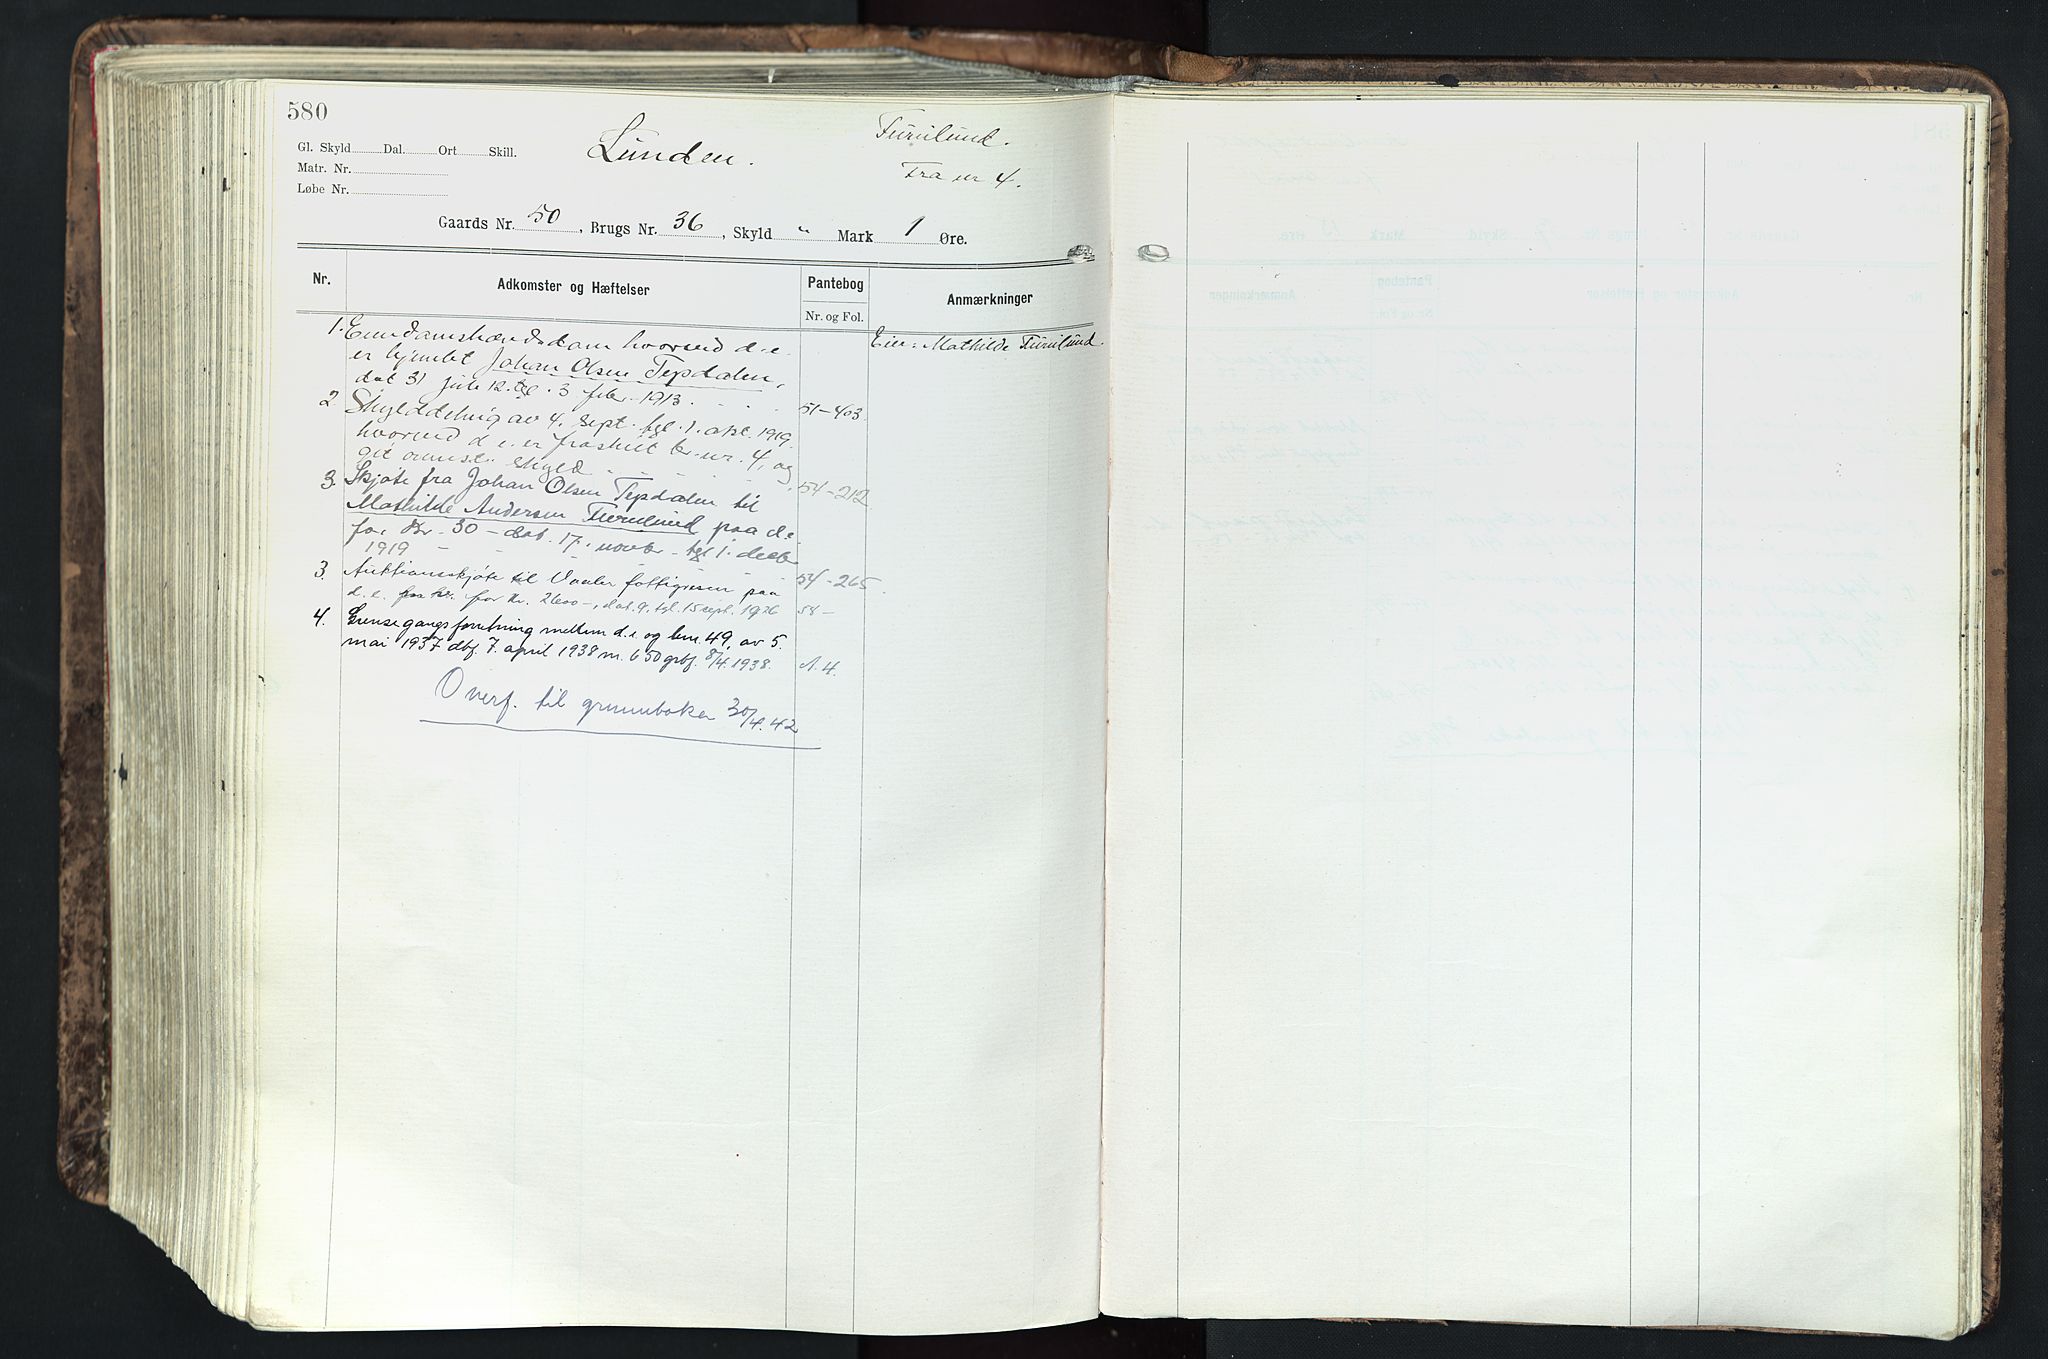 580
Gl. Skyld Dal. Ort Skill.
Matr. Nr.
Løbe Nr.
Lunden.
Furulund.
Fra nr 4.
Gaards Nr. 50, Brugs Nr. 36, Skyld " Mark 1 Øre.
Nr. Adkomster og Hæftelser Pantebog Anmærkninger
Nr. og Fol.
1. Eiendomshændsdom hvorved d. e. Eier: Mathilde Furulund.
er hjemlet Johan Olsen Tepdalen,
dat 31 juli 12. tgl. 3 febr. 1913. 51-403
2 Skylddeling av 4. sept. tgl. 1. okt. 1919.
hvorved d. e. er fraskilt br. nr. 4, og
git ovenst. skyld 54-212
3. Skjøte fra Johan Olsen Tepdalen til
Mathilde Andersen Furulund paa d. e.
for Kr. 30 - dat. 17. novbr. tgl 1. decbr
1919 54-265
3. Auktionsskjøte til Vaaler fattigvesen paa
d. e. for Kr. 2600-, dat. 9, tgl. 15 sept. 1926 58-
4. Grensegangsforretning mellem d. e. og bnr. 49, av 5.
mai 1937 dbf. 7. april 1938 nr. 650 grbf. 8/4. 1938. A. 4.
Overf. til grunnboken 30/4. 42